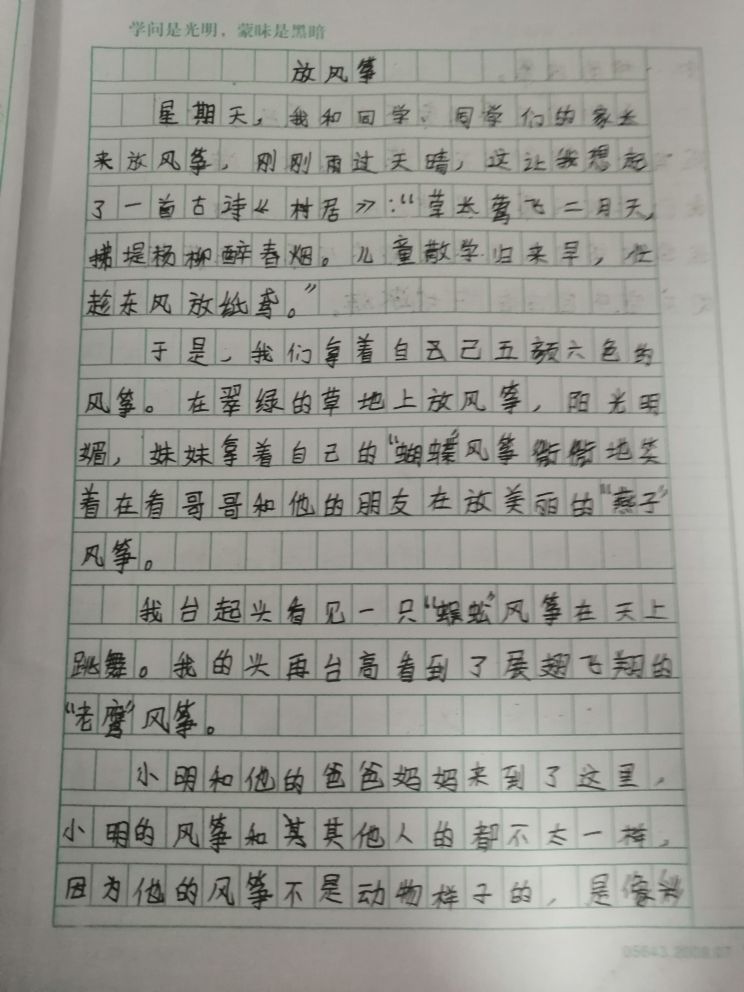 学问是光明，蒙昧是黑暗
放风筝
星期天，我和同学、同学们的家长
来放风筝，刚刚雨过天晴，这让我想起
了一首古诗《村居》：“草长莺飞二月天，
拂堤杨柳醉春烟。儿童散学归来早，忙
趁东风放纸鸢。”
于是，我们拿着自己五颜六色的
风筝。在翠绿的草地上放风筝，阳光明
媚，妹妹拿着自己的“蝴蝶”风筝 地笑
着在看哥哥和他的朋友在放美丽的“燕子”
风筝。
我台起头看见一只“蜈蚣”风筝在天上
跳舞。我的头再台高看到了展翅飞翔的
“老鹰”风筝。
小明和他的爸爸妈妈来到了这里，
小明的风筝和其其他人的都不太一样，
因为他的风筝不是动物样子的，是像
05643.2008.07